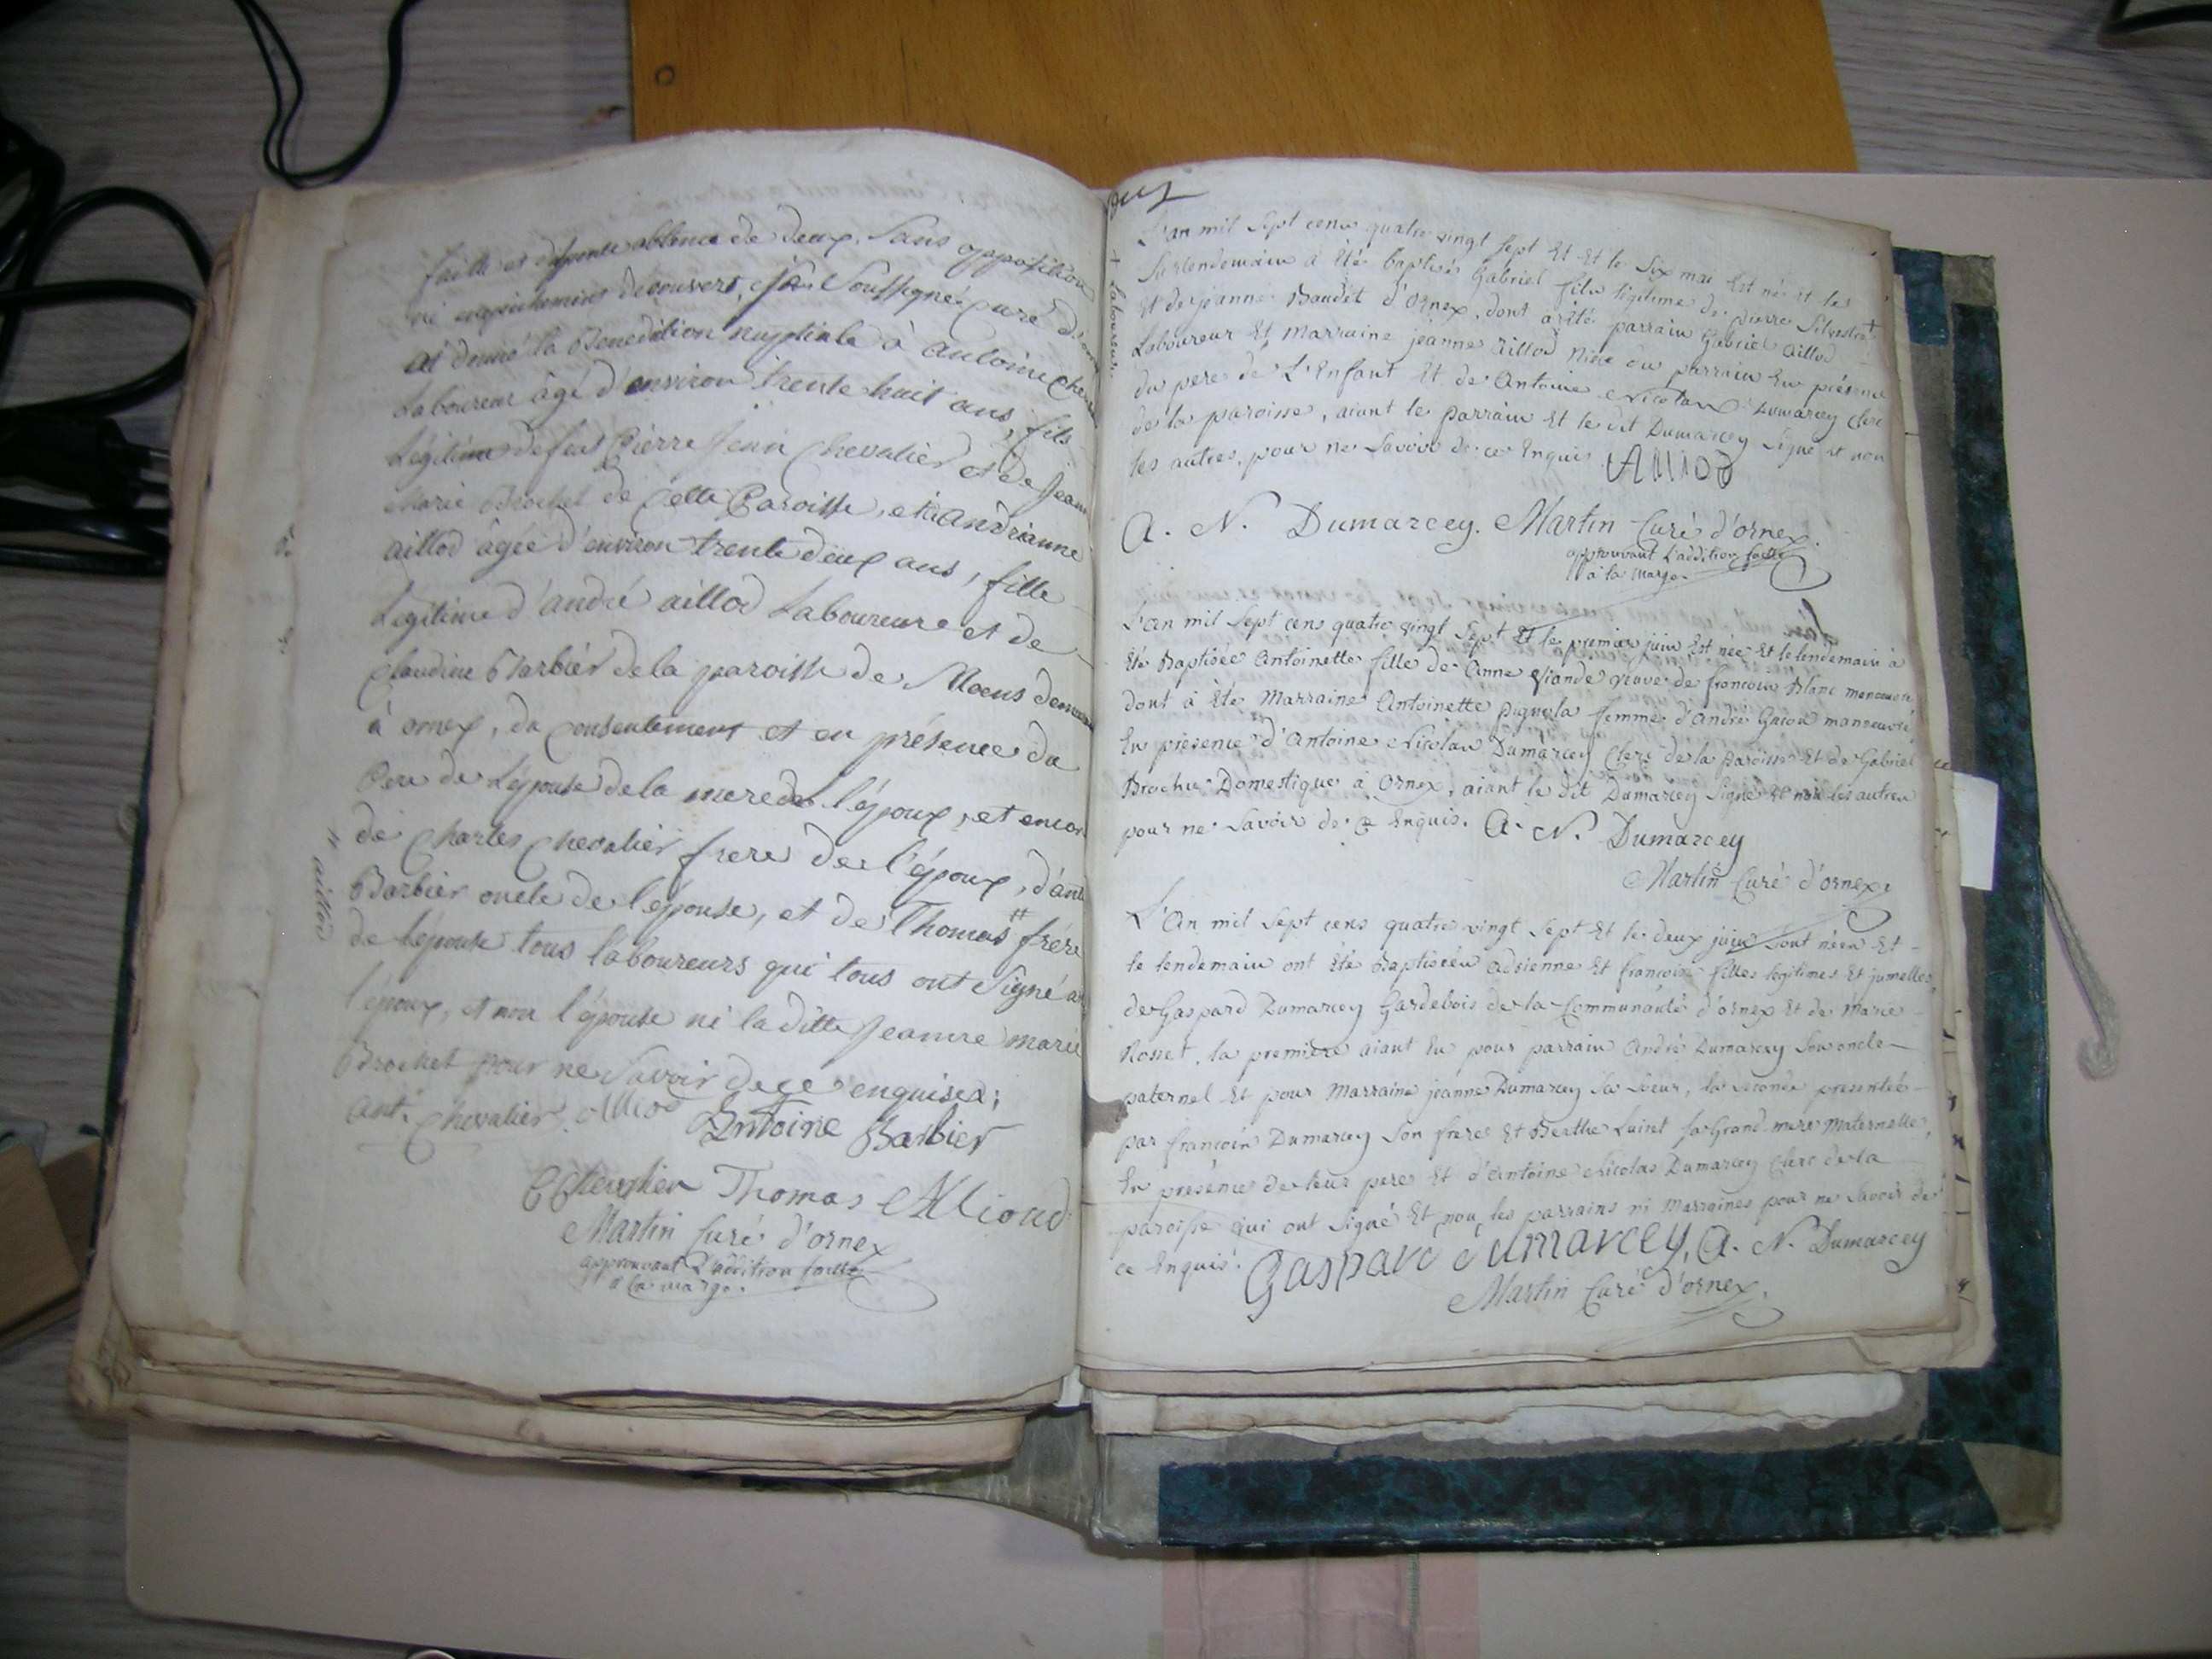 faitte et dispense obtenue de deux, sans opposition
ni empêchement découvert, je soussigné curé d'orn
ai donné la Benediction nuptiale à antoine Cheva
Laboureur âgé d'environ trente huit ans, fils
Légitime de feu Pierre Jean Chevalier et de Jean
Marie Brochet de Cette Paroisse, et à andrianne
aillod âgée d'environ trente deux ans, fille
Légitime d'andré aillod Laboureur et de
Claudine Barbier de la paroisse de Moens demeur
à ornex, du consentement et en présence du
Pere de L'épouse de la mere de l'époux, et encor
de Charles Chevalier frere de l'époux, d'ant
Barbier oncle de l'épouse, et de Thomas ++ frére
de l'épouse tous laboureurs qui tous ont Signé a
l'époux, et non l'épouse ni la ditte Jeanne marie
Brochet pour ne Savoir de ce enquises;
++ aillod
ant. Chevalier. Alliod Antoine Barbier
C Chevalier Thomas Alliod
Martin Curé d'ornex
approuvant L'addition faitte
à la marge.
L'an mil Sept cens quatre vingt Sept Et le Six mai Est né Et le
Surlendemain à Eté baptisé Gabriel fils légitime de pierre Silvestre +
Et de jeanne Baudet d'Ornex, dont à Eté parrain Gabriel Aillod
Laboureur Et Marraine jeanne Aillod Niéce du parrain En présence
du pere de L'Enfant Et de Antoine Nicolas Dumarcey Clerc
de la paroisse, aiant le parrain Et le dit Dumarcey Signé et non
les autres, pour ne Savoir de ce Enquis. Alliod
+ Laboureur.
A. N. Dumarcey. Martin Curé d'ornex.
approuvant L'addition faitte
à la marge.
L'an mil Sept cens quatre vingt Sept Et le premier juin Est née Et le lendemain à
Eté Baptisée Antoinette fille de Anne Viande veuve de francois Blanc
dont à Eté Marraine Antoinette Pignola femme d'André Gacon manoeuvre
En présence d'Antoine Nicolas Dumarcey Clerc de la paroisse Et de Gabriel
Brochu Domestique à Ornex, aiant le dit Dumarcey Signé Et non les autres
pour ne Savoir de ce Enquis. A. N. Dumarcey
Martin Curé d'ornex.
L'An mil Sept cens quatre vingt Sept Et le deux juin Sont nées Et
le lendemain ont Eté Baptisées adrienne Et francoise filles legitimes Et jumelles
de Gaspard Dumarcey Gardebois de la Communauté d'ornex Et de Marie
Rosset, la premiere aiant Eu pour parrain André Dumarcey Son oncle
paternel Et pour Marraine jeanne Dumarcey Sa Soeur, la seconde presentée
par francois Dumarcey Son frere Et Berthe Luiset Sa Grand-mere Maternelle,
En présence de leur pere Et d'Antoine Nicolas Dumarcey Clerc de la
paroisse qui ont Signé Et non les parrains ni Marraines pour ne Savoir de
ce Enquis. Gaspard Dumarcey, A. N. Dumarcey
Martin Curé d'ornex.